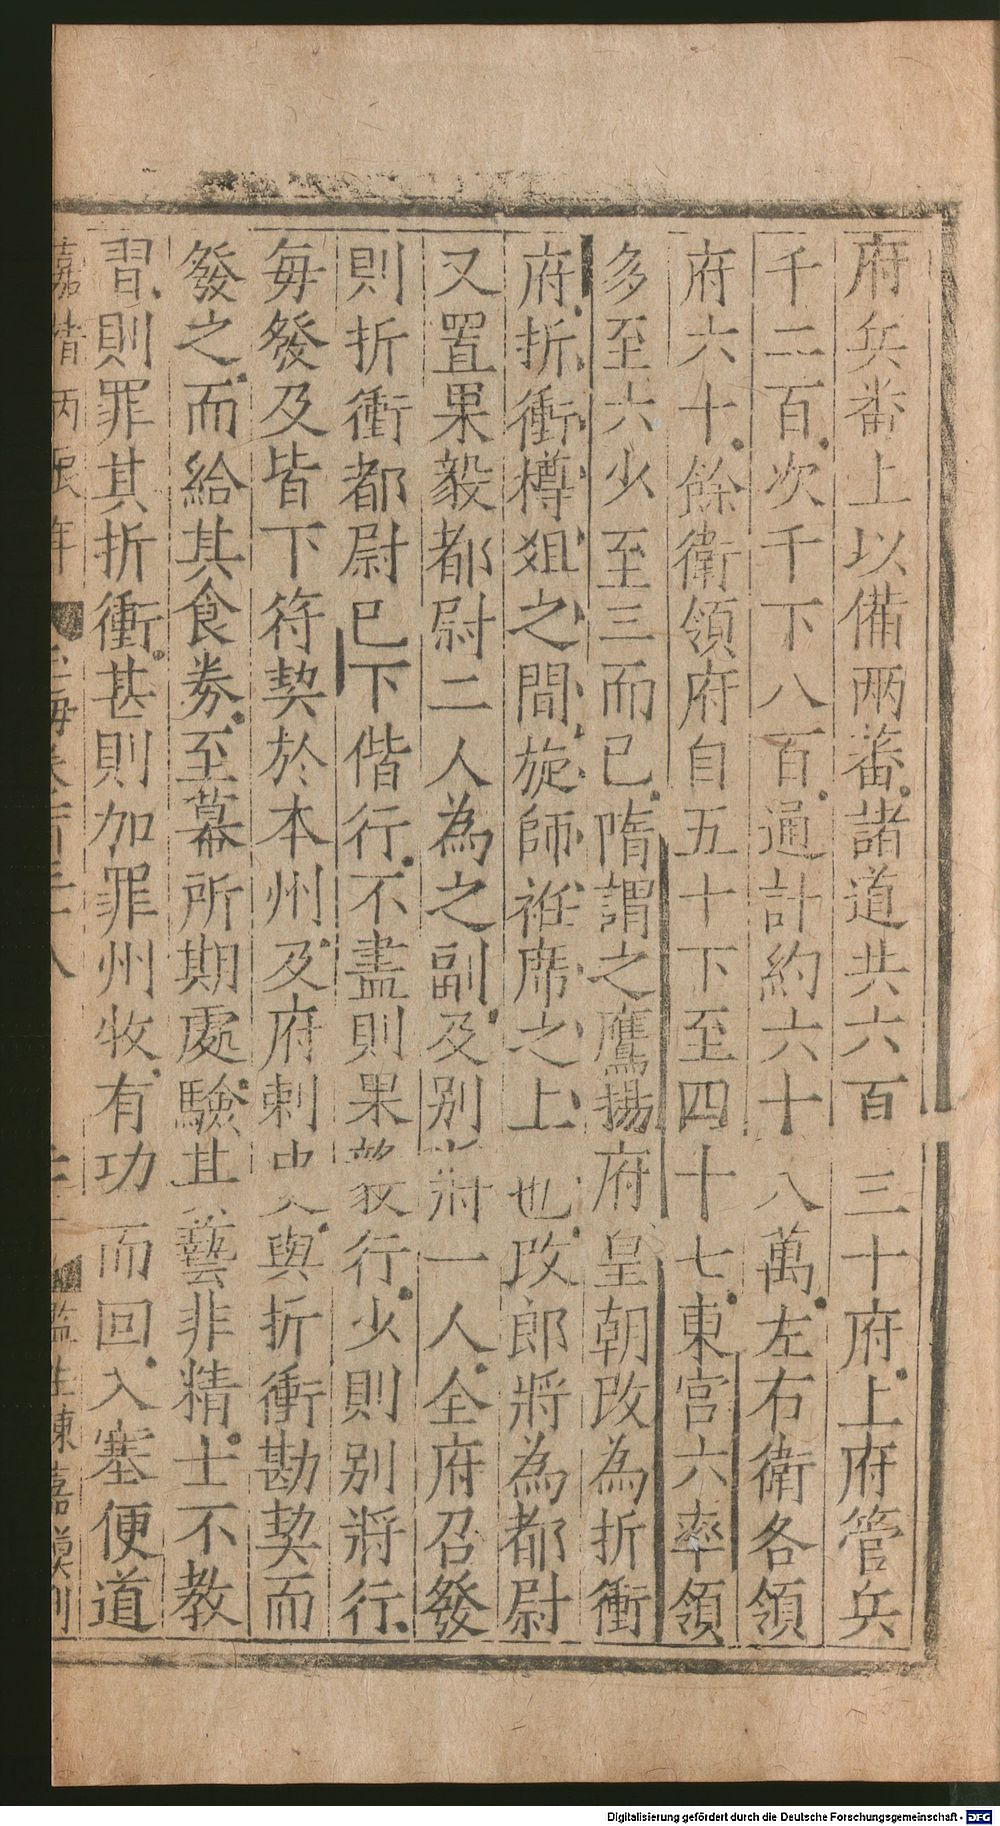 府兵畨上以備兩蕃諸道共六百三十府上府管兵
千二百次千下八百通計約六十八萬左右衛各領
府六十餘衛領府自五十下至四十七東宮六率領
多至六少至三而已隋謂之鷹揚府皇朝改為折衝
府折衝樽俎之間旋師袵席之上也改郎將為都尉
又置果毅都尉二人為之副及别將一人全府召發
則折衝都尉已下偕行不盡則果毅行少則别將行
每發及皆下符契於本州及府刺史與折衝勘契而
發之而給其食券至幕所期處驗其藝非精士不教
習則罪其折衝甚則加罪州牧有功而回入塞便道
嘉靖丙辰年 玉海卷 監生陳嘉謨刊
Digitalisierung gefördert durch die Deutsche Forschungsgemeinschaft - DFG